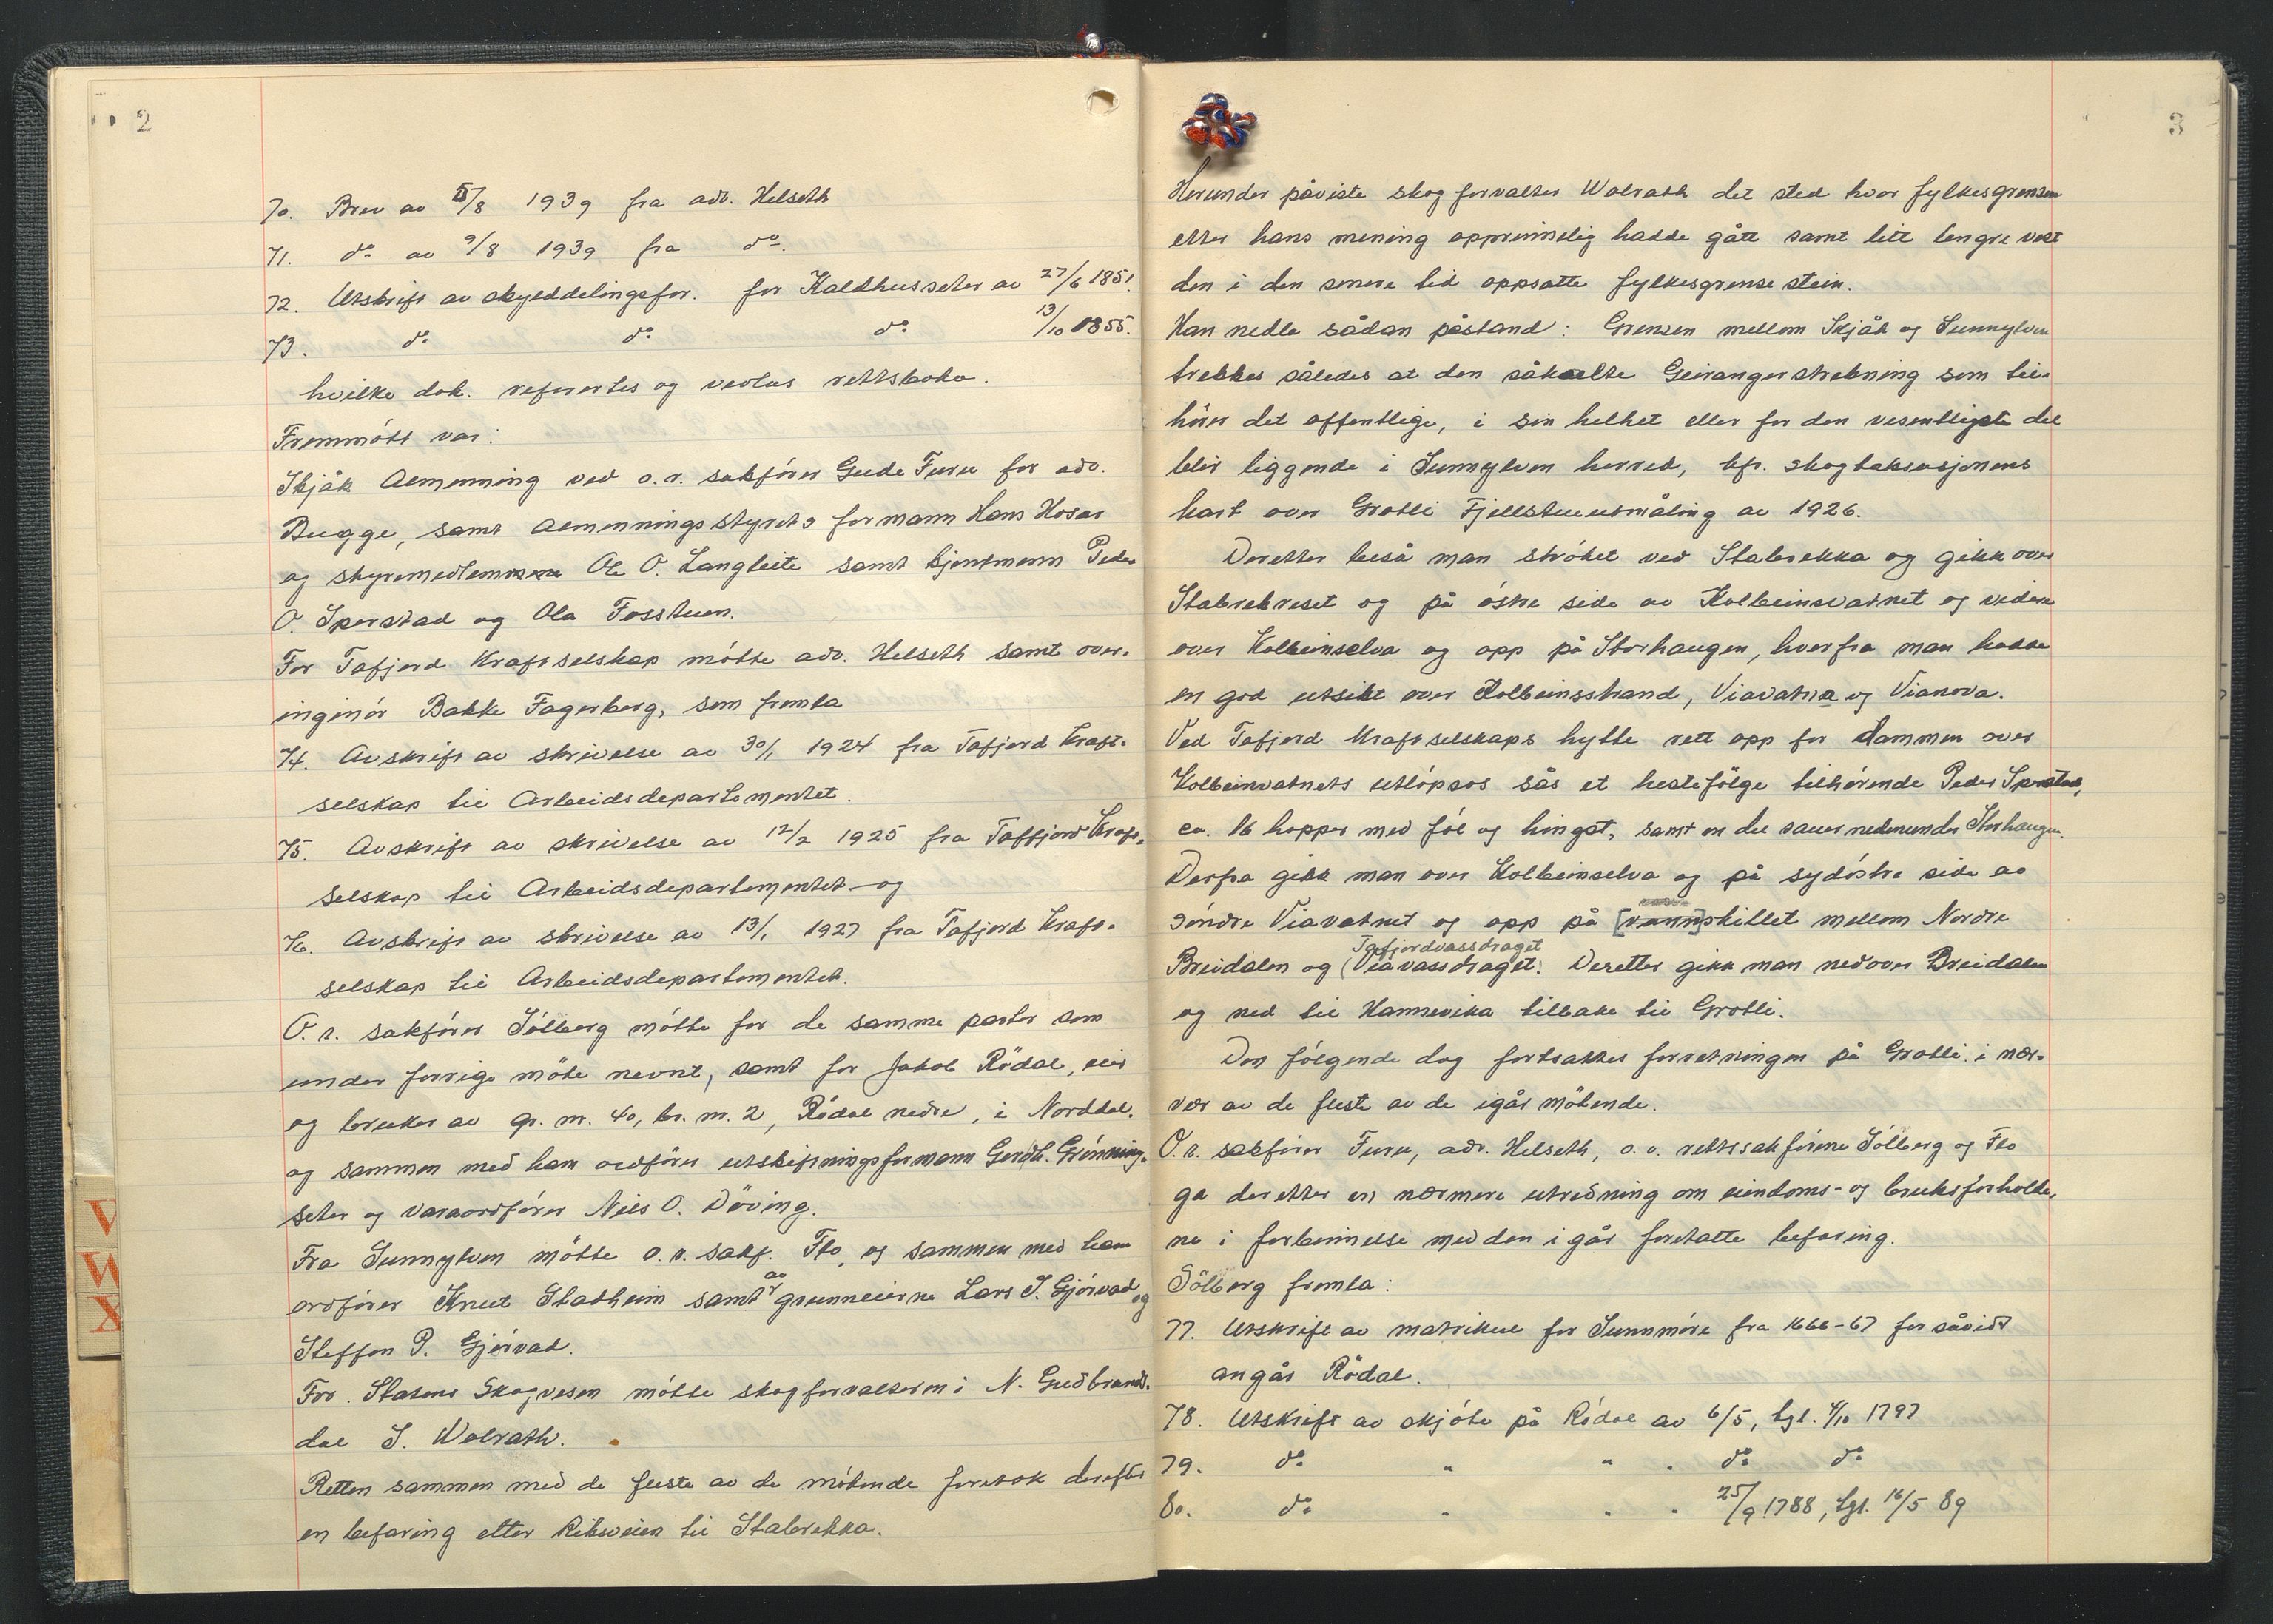 2
70. Brev av 5/8 1939 fra adv. Helseth
71. do av 9/8 1939 fra do.
72. Utskrift av skylddelingsfor. for Kaldhusseter av 27/6 1851.
73. do do do 13/10 1855.
hvilke dok. refertes og vedlas rettsboka.
Fremmött var:
Skjåk Almenning ved o.r. sakförer Gude Furu for adv.
Bugge, samt almenningsstyrets formann Hans Hosar
og styremedlemmene Ole O. Langleite samt kjentmenn Peder
O. Sperstad og Ola Fosstuen.
For Tafjord Kraftselskap mötte adv. Helseth samt over-
ingeniör Bakke Fagerberg, som fremla
74. Avskrift av skrivelse av 30/1 1924 fra Tafjord Kraft-
selskap til Arbeidsdepartementet.
75. Avskrift av skrivelse av 12/2 1925 fra Taffjord Kraft-
selskap til Arbeidsdepartementet og
76. Avskrift av skrivelse av 13/1 1927 fra Tafjord Kraft-
selskap til Arbeidsdepartementet.
O.r. sakförer Sölberg mötte for de samme parter som
under forrige möte nevnt, samt for Jakob Rödal, eier
og bruker av gr. nr. 40, br. nr. 2, Rödal nedre, i Norddal.
og sammen med ham ordförer utskiftningsformann Gerdh. Grönning-
seter og varaordförer Nils O. Döving.
Fra Sunnylven mötte o.r. sakf. Flo, og sammen med ham
ordförer Knut Stadheim samt av grunneierne Lars S. Gjörvad og
Steffen P. Gjörvad.
For Statens Skogvesen mötte skogforvalteren i N. Gudbrands-
dal S. Wolrath.
Retten sammen med de fleste av de mötende foretok derefter
en befaring etter Riksveien til Stabrekka.
3
Herunder påviste skogforvalter Wolrath det sted hvor fylkesgrensen
etter hans mening opprinnelig hadde gått samt litt lengre vest
den i den senere tid oppsatte fylkesgrensestein.
Han nedla sådan påstand: Grensen mellem Skjåk og Sunnylven
trekkes således at den såkalte Geirangerstrekning som til-
hörer det offentlige, i sin helhet eller for den vesentligste del
blir liggende i Sunnylven herred, kfr. skogtaksasjonens
kart over Grotli Fjellstueutmåling av 1926.
Deretter beså man ströket ved Stabrekka og gikk over
Stabrekreset og på östre side av Kolbeinsvatnet og videre
over Kolbeinselva og opp på Storhaugen, hvorfra man hadde
en god utsikt over Kolbeinsstrand, Viavatna og Vianova.
Ved Tafjord Kraftselskaps hytte rett opp for dammen over
Kolbeinvatnets utlöpsos sås et hestefölge tilhörende Peder Sperstad,
ca. 16 hopper med föl og hingst, samt en del sauer nedenunder Storhaugen.
Derfra gikk man over Kolbeinselva og på sydöstre side av
söndre Viavatnet og opp på [vann]skillet mellom Nordre
Tafjordvassdraget
Breidalen og (Viavassdraget. Deretter gikk man nedover Breidalen
og ned til Hamnevika tilbake til Grotli.
Den fölgende dag fortsattes forretningen på Grotli i nær-
vær av de fleste av de igår mötende.
O.r. sakförer Furu, adv. Helseth, o. r. rettssakförerne Sölberg og Flo
ga deretter en nærmere utredning om eiendoms- og bruksforholde-
ne i forbinnelse med den i går foretatte befaring.
Sölberg fremla:
77. Utskrift av matrikul for Sunnmöre fra 1666-67 forsåvidt
angår Rödal.
78. Utskrift av skjöte på Rödal av 6/5, tgl. 4/10 1797
79. do " " . do do
80. do " " . 25/9 1788, tgl. 16/5 89
V
W
X